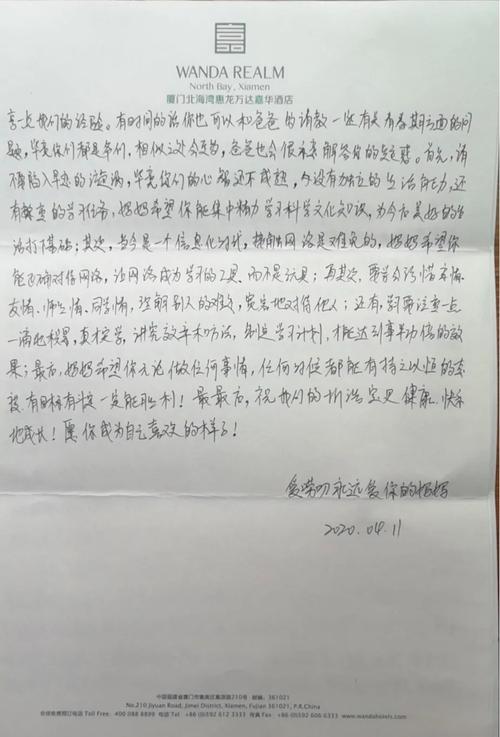 WANDA REALM
North Bay, Xiamen
厦门北海湾惠龙万达嘉华酒店
享一点我们的经验。有时间的话你也可以和爸爸的请教一些有关青春期方面的问
题，毕竟你们都是男们，相似之处会更多，爸爸也会很乐意解答你的疑惑。首先，请
不要陷入早恋的漩涡，毕竟你们的心智还不成熟，今没有独立的生活能力，还
有繁重的学习任务，妈妈希望你能集中精力学习科学文化知识，为今后美好的生
活打下基础；其次，当今是一个信息化时代，接触网络是难免的，妈妈希望你
能正确对待网络，让网络成为学习的工具、而不是玩具；再其次，要学会珍惜亲情、
友情、师生情、同学情，理解别人的难处，宽容地对待他人；还有，学习要注重一点
一滴地积累，真抓实学，讲究效率和方法，制定学习计划，才能达到事半功倍的效
果；最后，妈妈希望你无论做任何事情，任何时候都能有持之以恒的态
度，有目标有斗志一定能胜利！最最后，祝我们的 宝贝健康、快乐
地成长！愿你成为自己喜欢的样子！
爱唠叨永远爱你的妈妈
2020.04.11
中国福建省厦门市集美区集源路210号 邮编：361021
No.210 Jiyuan Road, Jimei District, Xiamen, Fujian 361021, P.R.China
全球免费预订电话 Toll Free: 400 088 8899 电话 Tel +86 (0)592 612 3333 传真 Fax +86 (0)592 606 6333 www.wandahotels.com